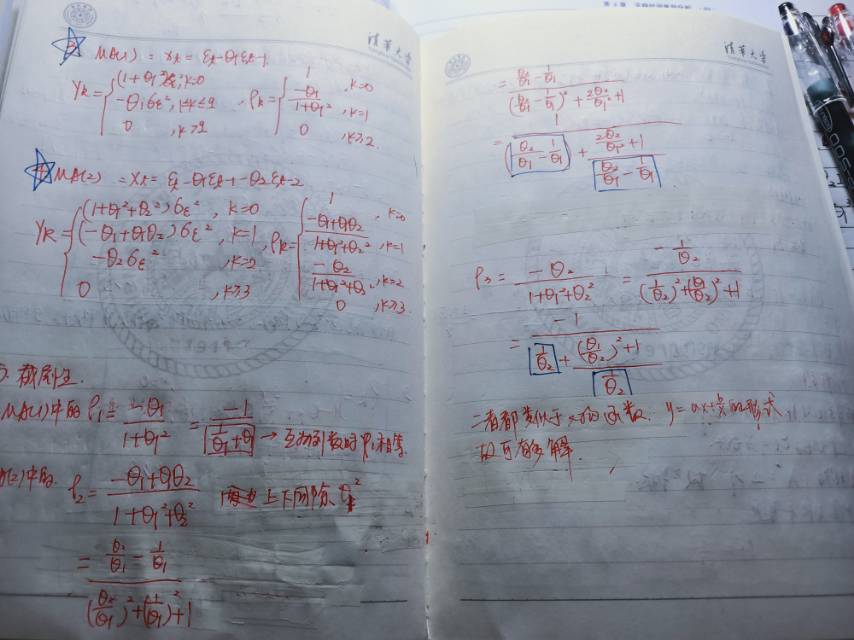 清华大学
MA(1) = Xt = εt-θ1εt-1
γk = { (1+θ1²)σε², k=0
-θ1σε², 1≤k≤q
0, k>q
ρk = { 1, k=0
-θ1/(1+θ1²), k=1
0, k≥2
MA(2) = Xt = εt-θ1εt-1-θ2εt-2
γk = { (1+θ1²+θ2²)σε², k=0
(-θ1+θ1θ2)σε², k=1
-θ2σε², k=2
0, k≥3
ρk = { 1, k=0
(-θ1+θ1θ2)/(1+θ1²+θ2²), k=1
-θ2/(1+θ1²+θ2), k=2
0, k≥3
截尾性
MA(1)中的 ρ1 = -θ1/(1+θ1²) = -1/(1/θ1+θ1) → 互为倒数时ρ1相等
中的 ρ2 = (-θ1+θ1θ2)/(1+θ1²+θ2²) 上下同除θ1²
= (θ2/θ1 - 1/θ1)/((θ2/θ1)²+(1/θ1)²+1)
清华大学
= (θ2/θ1 - 1/θ1)/((θ2/θ1 - 1/θ1)² + 2θ2/θ1² + 1)
= 1/((θ2/θ1 - 1/θ1) + (2θ2/θ1² + 1)/(θ2/θ1 - 1/θ1))
ρ3 = -θ2/(1+θ1²+θ2²) = (-1/θ2)/((1/θ2)²+(θ1/θ2)²+1)
= -1/(1/θ2 + ((θ1/θ2)²+1)/(1/θ2))
二者都类似于 的函数, y=ax+b/x的形式
故可有多解.